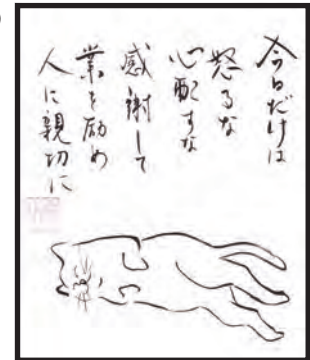 今日だけは
怒るな
心配すな
感謝して
業を励め
人に親切に